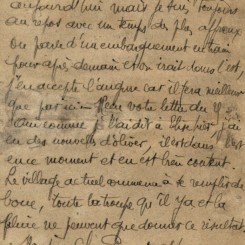 aujourd'hui mais je suis toujours
au repos avec un temps des plus affreux
on parle d'un embarquement en train
pour après demain et on irait dans l'est
j'en accepte l'augure car il fera meilleur
que par ici reçu votre lettre du
comme je l'ai dit à j'ai
eu des nouvelles d'olivier, il est dans l'est
en ce moment et en est bien content.
Le village actuel commence à se remplir de
boue, toute la troupe qu'il y a et la
pluie ne peuvent que donner ce résultat